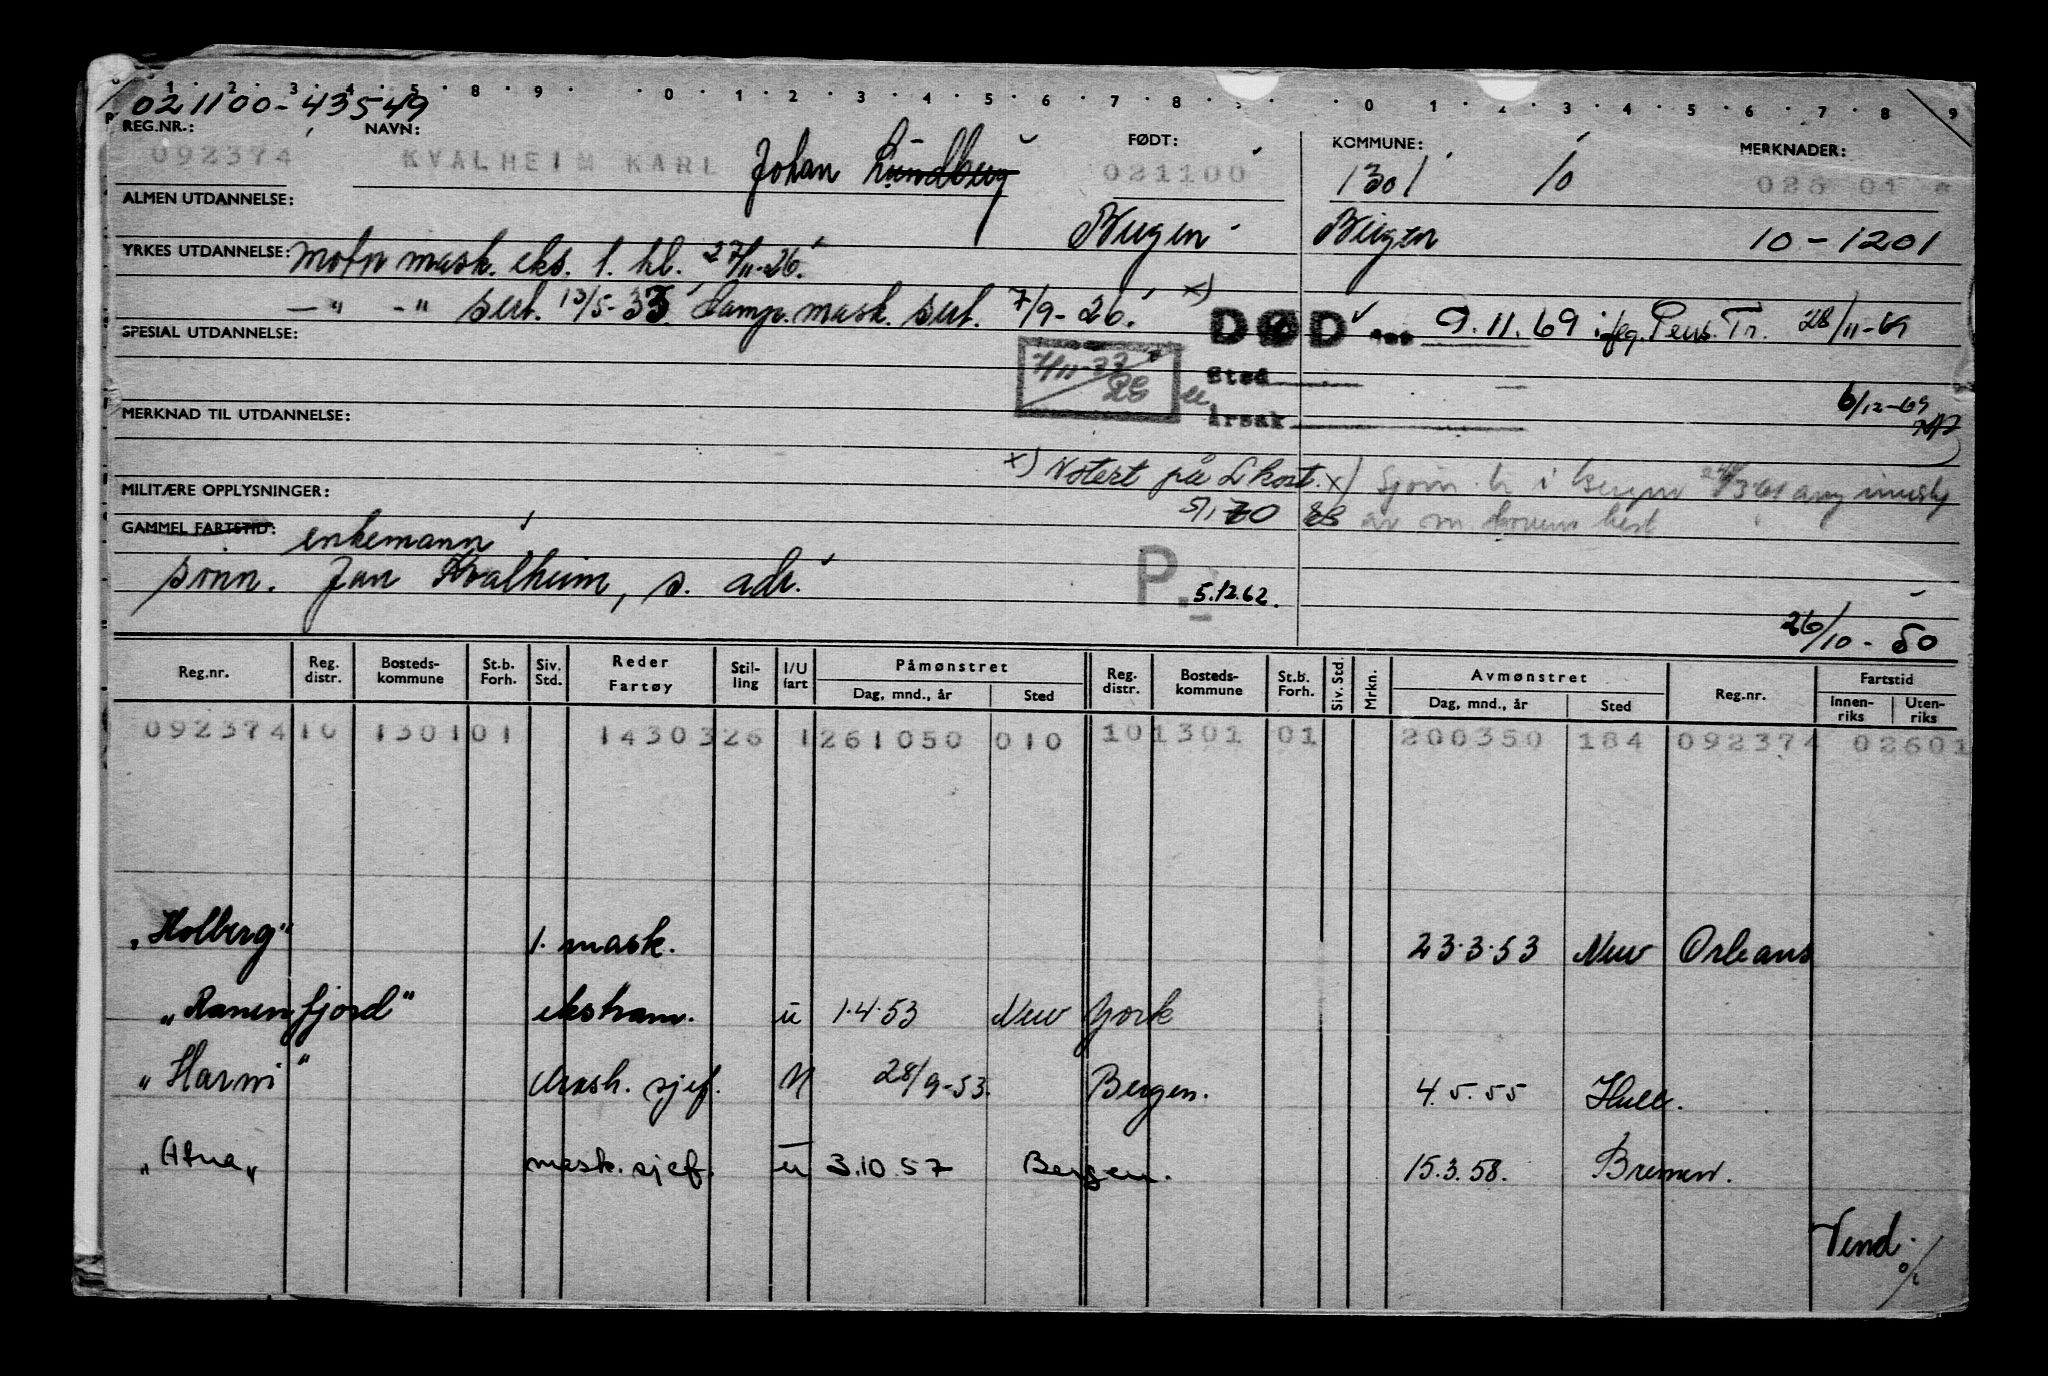 021100-43549
REG.NR.: NAVN: FØDT: KOMMUNE: MERKNADER:
092374 KVALHEIM KARL Johan Lundberg 021100 1301 10 026 01
ALMEN UTDANNELSE:
Bergen Bergen 10-1201
YRKES UTDANNELSE: Motor mask. eks. 1. kl. 27/11-26.
—"— -" sert. 13/5-33. Damp. mask. sert. 7/9-26. x)
DØD 9.11.69 iføg. Pens. Tr. 28/11-69
SPESIAL UTDANNELSE:
Sted
6/12-69
MERKNAD TIL UTDANNELSE:
Årsak
x) Notert på L kort. x) Sjøm. h i Bergen
MILITÆRE OPPLYSNINGER:
5/1 70
GAMMEL FARTSTID: enkemann
sønn. Jan Kvalheim, s. adr.
P. 5.12.62.
26/10-50
Reg.nr. Reg. distr. Bosteds- kommune St.b. Forh. Siv. Std. Reder Fartøy Stil- ling I/U fart Påmønstret Dag, mnd., år Sted Reg. distr. Bosteds- kommune St.b. Forh. Siv. Std. Mrkn. Avmønstret Dag, mnd., år Sted Reg.nr. Fartstid Innen- riks Uten- riks
092374 10 1301 01 1430326 1 261050 010 10 1301 01 200350 184 092374 02601
"Holberg" 1. mask. 23.3.53 New Orleans
"Ranenfjord" ekstram. u 1.4.53 New York
"Harwi" Mask. sjef. U 28/9-53. Bergen. 4.5.55 Hull.
"Atna" mask. sjef. u 3.10 57 Bergen. 15.3.58. Bremen.
Vend.